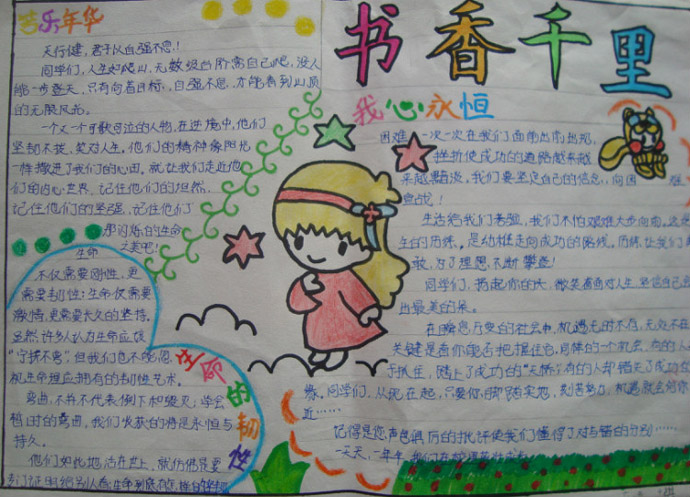 苦乐年华
天行健,君子以自强不息!
同学们,人生如爬山,无数级台阶需自己爬,没人
能一步登天,只有向着目标,自强不息,才能看到山顶
的无限风光。
一个又一个可歌可泣的人物,在逆境中,他们
坚韧不拔,笑对人生,他们的精神像阳光
一样撒进了我们的心田,就让我们走近他
们的内心世界,记住他们的坦然,
记住他们的坚强,记住他们
那闪烁的生命
之美吧!
生命
不仅需要刚性,更
需要韧性;生命仅需要
激情,更需要长久的坚持。
虽然许多人认为生命应该
“宁折不弯”,但我们也不能忽
视生命理应拥有的韧性艺术。
弯曲,不并不代表倒下和毁灭;学会
暂时的弯曲,我们收获的将是永恒与
持久。
他们如此地活在世上,就仿佛是要
生命的韧性
书香千里
我心永恒
困难一次一次在我们面前出前出现,
挫折使成功的道路越来越
来越黯淡,我们要坚定自己的信念,向困难
宣战!
生活给我们考验,我们不怕艰难大步向前,
生的历练,是幼稚走向成功的路线,历练让我们
敢,为了理想,不断攀登!
同学们,扬起你的头,微笑着面对人生,坚信自己
出最美的采。
在瞬息万变的社会中,机遇无时不在,无处不在
关键是看你能否把握住它,同样的一个机会,有的人
于抓住,踏上了成功的“天桥”;有的人却错失了成功的
缘。同学们,从现在起,只要你脚踏实地,刻苦努力,机遇就会向你
近……
记得是您,声色俱厉的批评使我们懂得了对与错的分别……
一天天,一年年,我们在